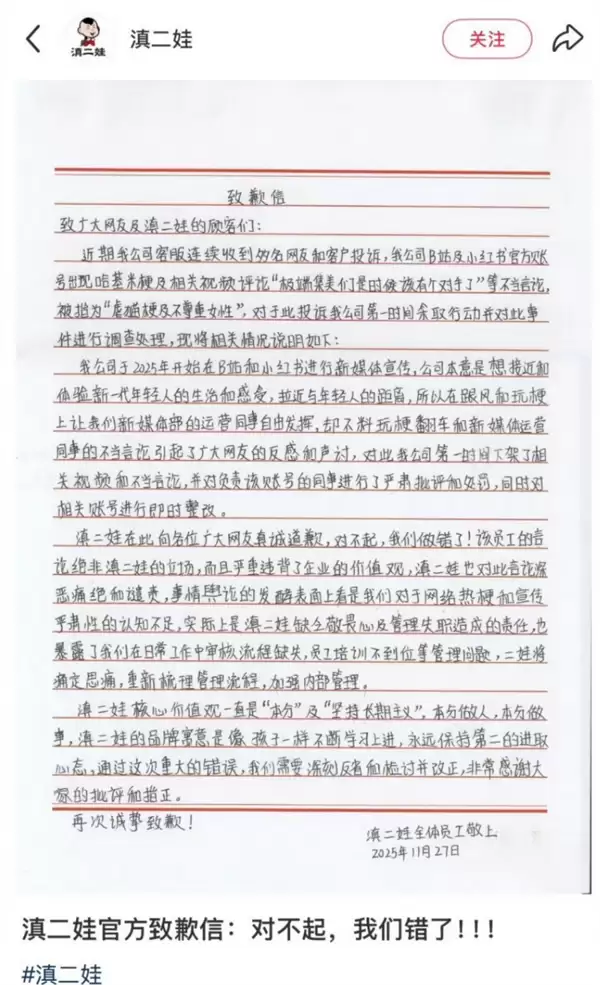 滇二娃
滇二娃
关注
致歉信
致广大网友及滇二娃的顾客们：
近期我公司客服连续收到多名网友和客户投诉，我公司B站及小红书官方账
号出现哈基米梗及相关视频评论“极端集美们是时候该有个对手了”等不当言论，
被指为“虐猫梗及不尊重女性”，对于此投诉我公司第一时间采取行动并对此事
件进行调查处理，现将相关情况说明如下：
我公司于2025年开始在B站和小红书进行新媒体宣传，公司本意是想接近和
体验新一代年轻人的生活和感受，拉近与年轻人的距离，所以在跟风和玩梗
上让我们新媒体部的运营同事自由发挥，却不料玩梗翻车和新媒体运营
同事的不当言论引起了广大网友的反感和声讨，对此我公司第一时间下架了相
关视频和不当言论，并对负责该账号的同事进行了严肃批评和处罚，同时对
相关账号进行即时整改。
滇二娃在此向各位广大网友真诚道歉，对不起，我们做错了！该员工的言
论绝非滇二娃的立场，而且严重违背了企业的价值观，滇二娃也对此言论深
恶痛绝和谴责，事情舆论的发酵表面上看是我们对于网络热梗和宣传
严肃性的认知不足，实际上是滇二娃缺乏敬畏心及管理失职造成的责任，也
暴露了我们在日常工作中审核流程缺失，员工培训不到位等管理问题，二娃将
痛定思痛，重新梳理管理流程，加强内部管理。
滇二娃核心价值观一直是“本分”及“坚持长期主义”，本分做人，本分做
事，滇二娃的品牌寓意是像孩子一样不断学习上进，永远保持第二的进取
心态，通过这次重大的错误，我们需要深刻反省和检讨并改正，非常感谢大
家的批评和指正。
再次诚挚致歉！
滇二娃全体员工敬上
2025年11月27日
滇二娃官方致歉信：对不起，我们错了！！！
#滇二娃